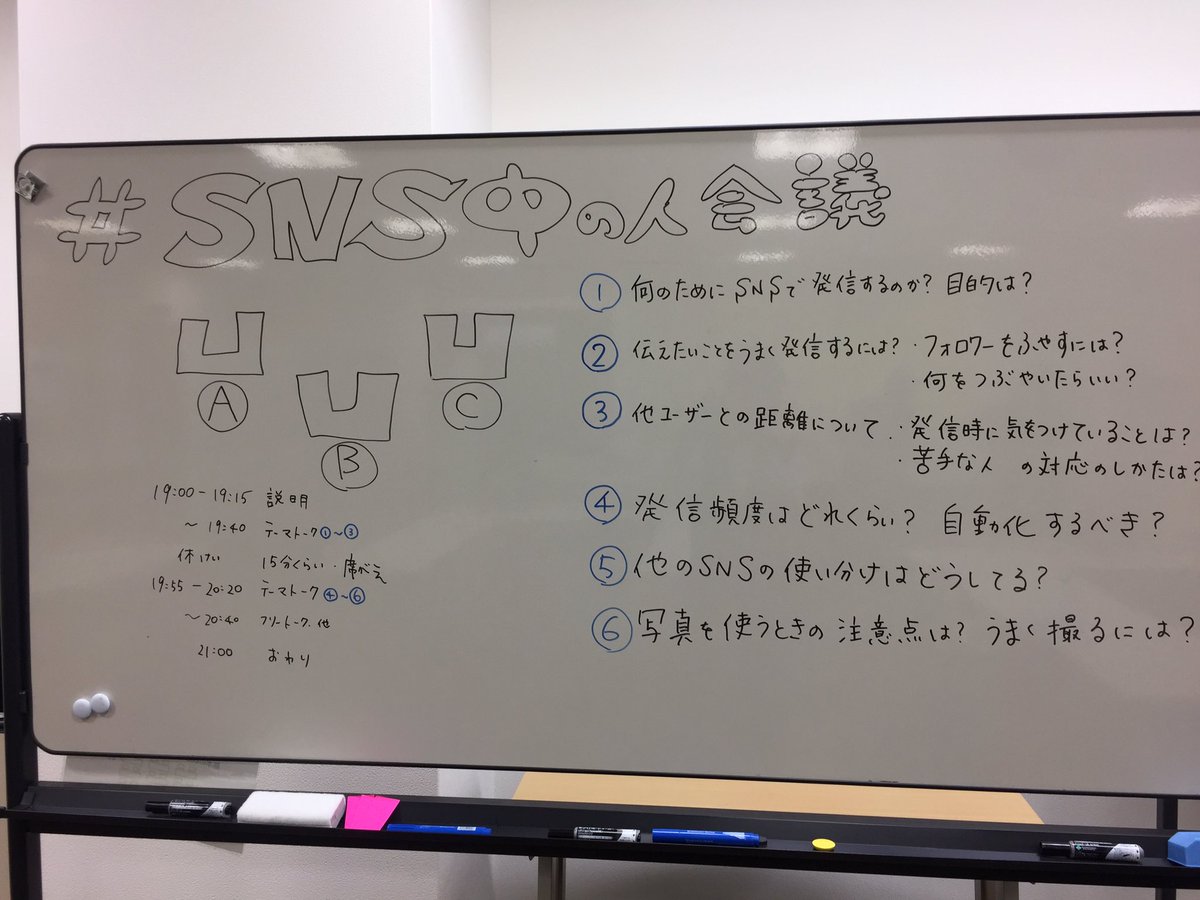 #SNS中の人会議
A
B
C
19:00-19:15 説明
～19:40 テーマトーク①～③
休けい 15分くらい・席がえ
19:55-20:20 テーマトーク④～⑥
～20:40 フリートーク.他
21:00 おわり
① 何のためにSNSで発信するのか？目的は？
② 伝えたいことをうまく発信するには？・フォロワーをふやすには？
・何をつぶやいたらいい？
③ 他ユーザーとの距離について ・発信時に気をつけていることは？
・苦手な人 の対応のしかたは？
④ 発信頻度はどれくらい？ 自動化するべき？
⑤ 他のSNSの使い分けはどうしてる？
⑥ 写真を使うときの注意点は？ うまく撮るには？